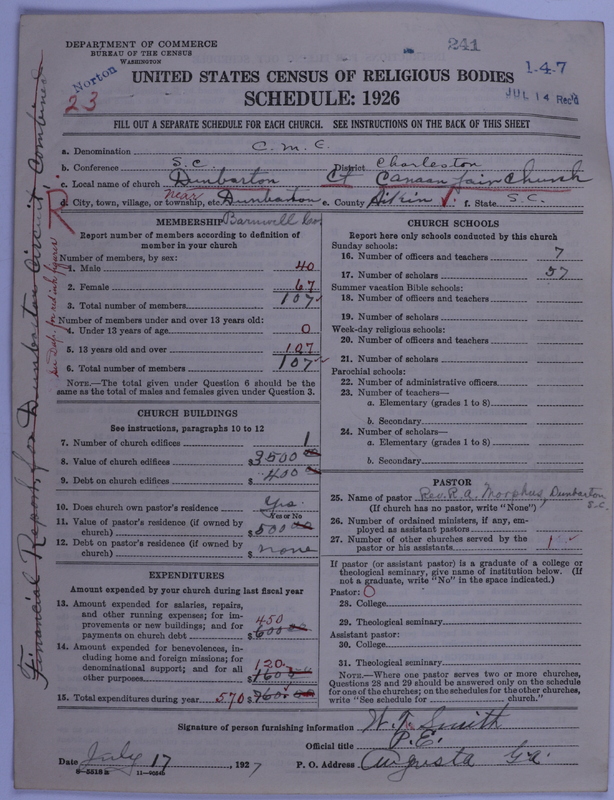 DEPARTMENT OF COMMERCE
BUREAU OF THE CENSUS
WASHINGTON
241
1-4-7
Norton
23
JUL 14 Rec'd
UNITED STATES CENSUS OF RELIGIOUS BODIES
SCHEDULE: 1926
FILL OUT A SEPARATE SCHEDULE FOR EACH CHURCH. SEE INSTRUCTIONS ON THE BACK OF THIS SHEET
a. Denomination C. M. E.
b. Conference S. C. District Charleston
c. Local name of church Dunbarton Ct Canaan Fair Church
d. City, town, village, or township, etc. near Dunbarton e. County Aikin f. State S. C.
Financial Reports for Dunbarton Circuit Combined
MEMBERSHIP Barnwell Co
Report number of members according to definition of
member in your church
Number of members, by sex:
1. Male 40
2. Female 67
3. Total number of members 107
Number of members under and over 13 years old:
4. Under 13 years of age 0
5. 13 years old and over 107
6. Total number of members 107
NOTE.—The total given under Question 6 should be
same as the total of males and females given under Question 3.
CHURCH BUILDINGS
See instructions, paragraphs 10 to 12
7. Number of church edifices 1
8. Value of church edifices $3500 00
9. Debt on church edifices $400 00
10. Does church own pastor's residence Yes
Yes or No
11. Value of pastor's residence (if owned by
church) $500 00
12. Debt on pastor's residence (if owned by
church) $none
EXPENDITURES
Amount expended by your church during last fiscal year
13. Amount expended for salaries, repairs,
and other running expenses; for im-
provements or new buildings; and for
payments on church debt $600 00 450
14. Amount expended for benevolences, in-
cluding home and foreign missions; for
denominational support; and for all
other purposes $160 00 120
15. Total expenditures during year 570 $760 00
CHURCH SCHOOLS
Report here only schools conducted by this church
Sunday schools:
16. Number of officers and teachers 7
17. Number of scholars 57
Summer vacation Bible schools:
18. Number of officers and teachers
19. Number of scholars
Week-day religious schools:
20. Number of officers and teachers
21. Number of scholars
Parochial schools:
22. Number of administrative officers
23. Number of teachers—
a. Elementary (grades 1 to 8)
b. Secondary
24. Number of scholars—
a. Elementary (grades 1 to 8)
b. Secondary
PASTOR
25. Name of pastor Rev. R. A. Morphus, Dunbarton S.C.
(If church has no pastor, write "None")
26. Number of ordained ministers, if any, em-
ployed as assistant pastors
27. Number of other churches served by the
pastor or his assistants 1
If pastor (or assistant pastor) is a graduate of a college or
theological seminary, give name of institution below. (If
not a graduate, write "No" in the space indicated.)
Pastor: O
28. College
29. Theological seminary
Assistant pastor:
30. College
31. Theological seminary
NOTE.—Where one pastor serves two or more churches,
Questions 28 and 29 should be answered only on the schedule
for one of the churches; on the schedules for the other churches,
write "See schedule for church."
Signature of person furnishing information W. T. Smith
Official title P. E.
Date July 17, 1927 P. O. Address Augusta Ga.
8-5518 a 11-9034b